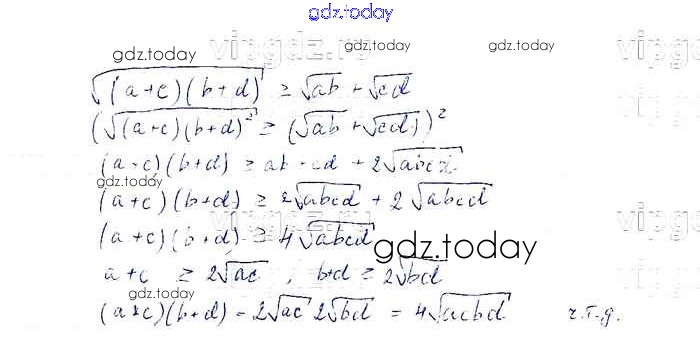 gdz.today
vipgdz.ru
gdz.today gdz.today gdz.today
√((a+c)(b+d)) ≥ √ab + √cd
(√((a+c)(b+d))² ≥ (√ab + √cd))²
(a+c)(b+d) ≥ ab + cd + 2√abcd
gdz.today
(a+c)(b+d) ≥ 2√abcd + 2√abcd
vipgdz.ru
(a+c)(b+d) ≥ 4√abcd
gdz.today
a+c ≥ 2√ac , b+d ≥ 2√bd
gdz.today
(a+c)(b+d) = 2√ac 2√bd = 4√acbd ч.т.д.